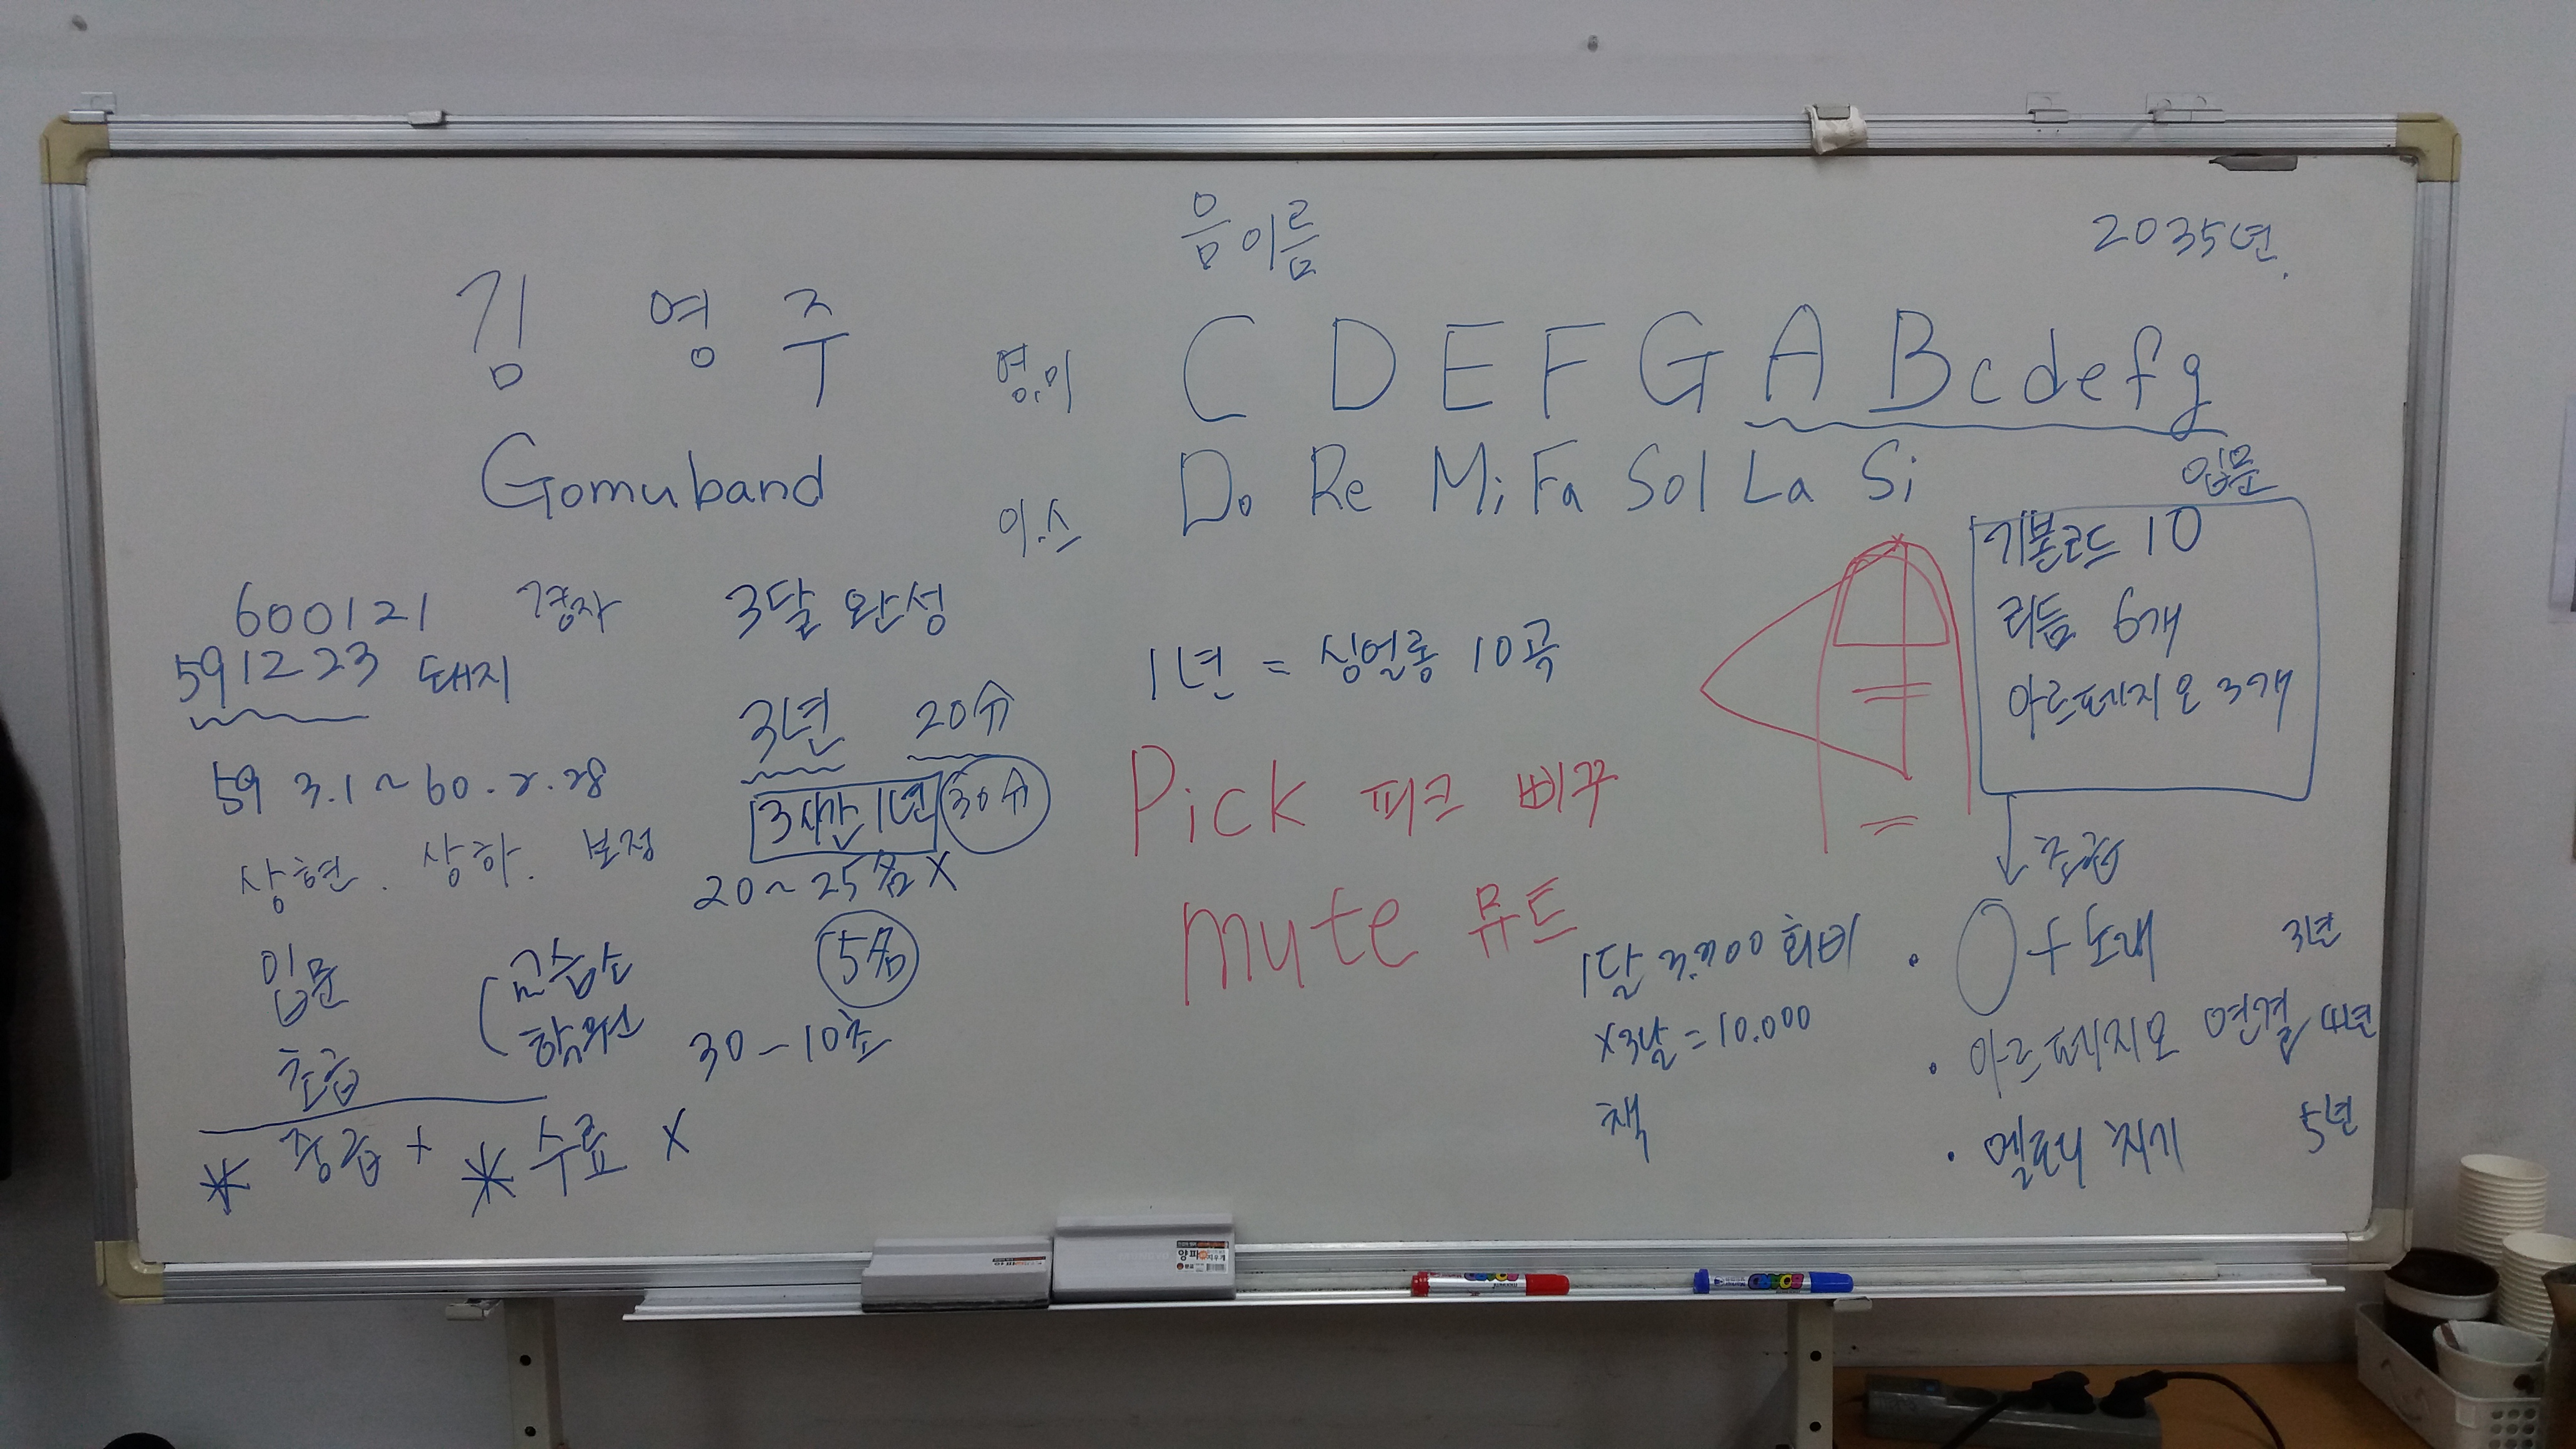 음이름
2035년.
김 영 주
영.미
C D E F G A B c d e f g
Gomuband
이.스
Do Re Mi Fa Sol La Si
입문
기본코드 10
리듬 6개
아르페지오 3개
600121 경자
3달 완성
591223 돼지
1년 = 싱얼롱 10곡
3년 20曲
59 3.1~60.2.28
3시간 1년
Pick 피크
상현. 상하. 보정
20~25名 X
mute 뮤트
5名
입문
초급
교습소
학원
30-10초
* 중급 + * 수료 X
1달 회비
x3달=10.000
책
· + 노래 3년
· 아르페지오 연결 4년
· 멜로디 치기 5년
양파